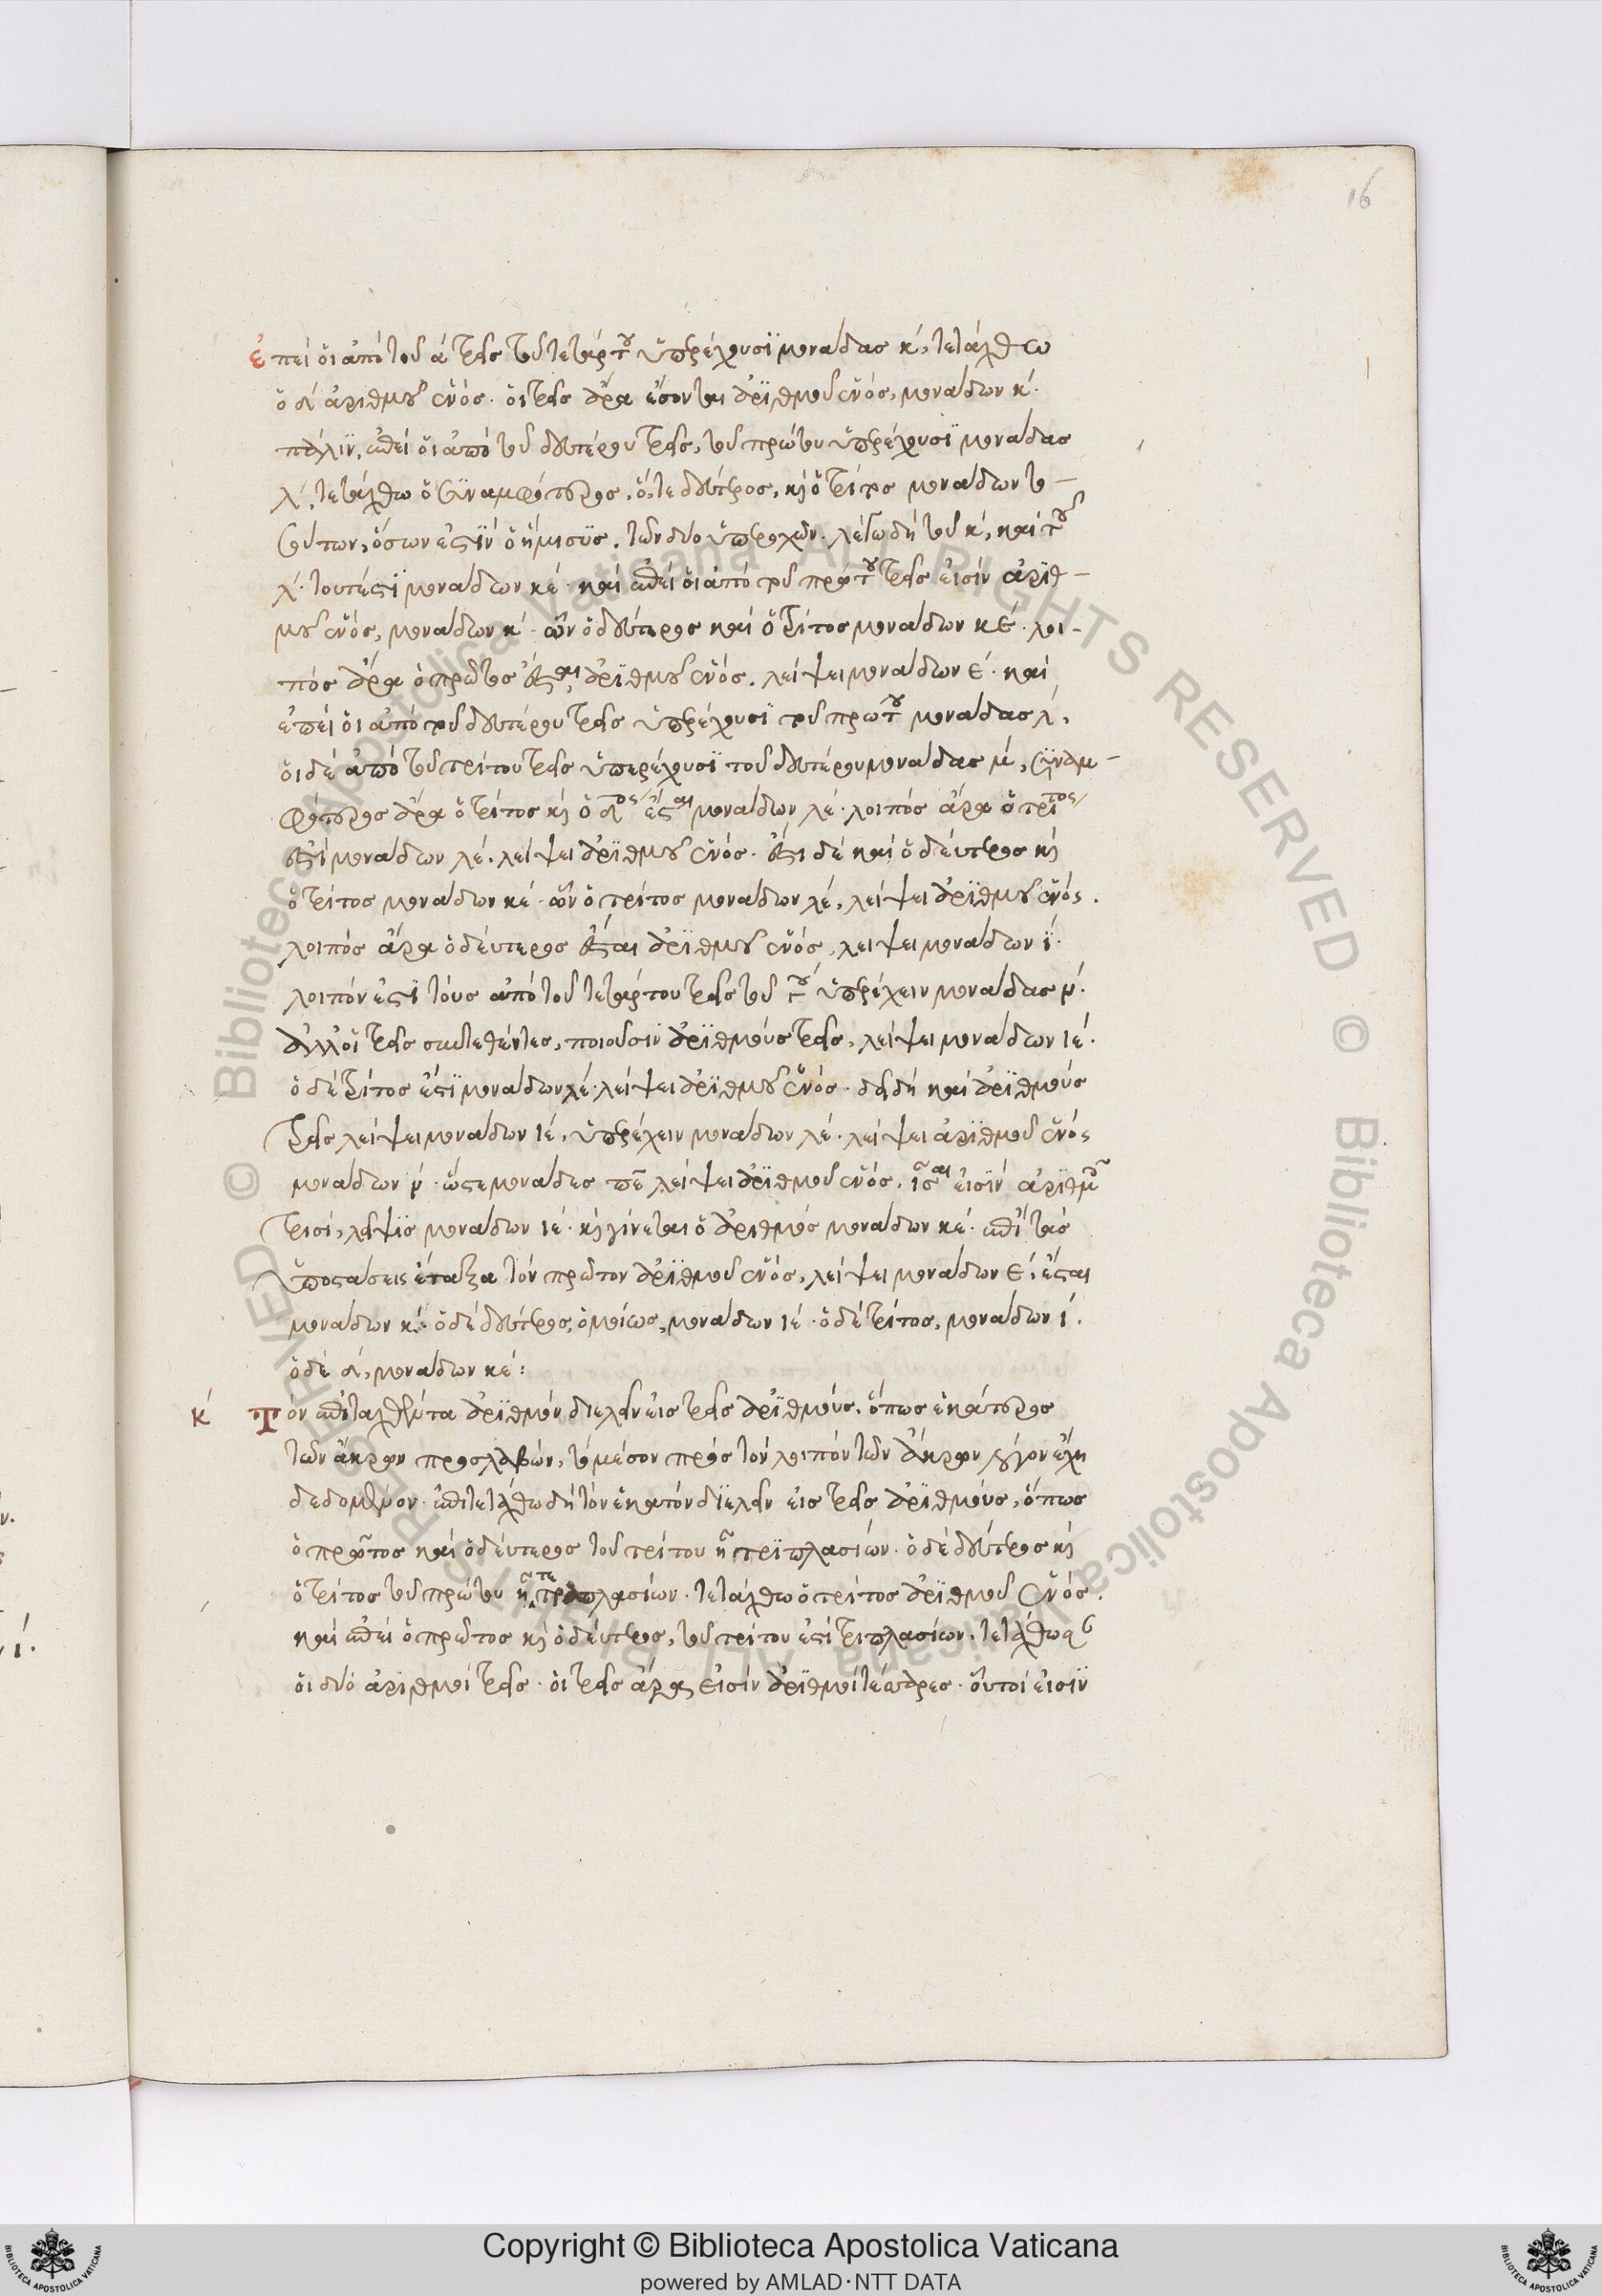 16
ἐπεὶ οἱ ἀπὸ τοῦ α τρεῖς τοῦ τετάρτου ὑπερέχουσι μονάδας κ, τετάχθω
ὁ δ ἀριθμοῦ ἑνός. οἱ τρεῖς ἄρα ἔσονται ἀριθμοῦ ἑνός, μονάδων κ.
πάλιν, ἐπεὶ οἱ ἀπὸ τοῦ δευτέρου τρεῖς, τοῦ πρώτου ὑπερέχουσι μονάδας
λ, τετάχθω ὁ συναμφότερος, ὅ,τε δεύτερος, καὶ ὁ τρίτος μονάδων το-
σούτων, ὅσων ἐστὶν ὁ ἥμισυς, τῶν δύο ὑπεροχῶν. λέγω δὴ τοῦ κ, καὶ τοῦ
λ. τουτέστι μονάδων κε. καὶ ἐπεὶ οἱ ἀπὸ τοῦ πρώτου τρεῖς εἰσὶν ἀριθ-
μοῦ ἑνός, μονάδων κ. ὧν ὁ δεύτερος καὶ ὁ τρίτος μονάδων κε. λοι-
πὸς ἄρα ὁ πρῶτος ἔσται ἀριθμοῦ ἑνός, λείψει μονάδων ε. καὶ
ἐπεὶ οἱ ἀπὸ τοῦ δευτέρου τρεῖς ὑπερέχουσι τοῦ πρώτου μονάδας λ,
οἱ δὲ ἀπὸ τοῦ τρίτου τρεῖς ὑπερέχουσι τοῦ δευτέρου μονάδας μ, συναμ-
φότερος ἄρα ὁ τρίτος καὶ ὁ δος ἔσται μονάδων λε. λοιπὸς ἄρα ὁ τρίτος
ἐστὶ μονάδων λε. λείψει ἀριθμοῦ ἑνός. ἔστι δὲ καὶ ὁ δεύτερος καὶ
ὁ τρίτος μονάδων κε. ὧν ὁ τρίτος μονάδων λε, λείψει ἀριθμοῦ ἑνός.
λοιπὸς ἄρα ὁ δεύτερος ἔσται ἀριθμοῦ ἑνός, λείψει μονάδων ι.
λοιπόν ἐστι τοὺς ἀπὸ τοῦ τετάρτου τρεῖς τοῦ γου ὑπερέχειν μονάδας ν.
ἀλλ' οἱ τρεῖς συντεθέντες, ποιοῦσιν ἀριθμοὺς τρεῖς, λείψει μονάδων ιε.
ὁ δὲ τρίτος ἐστὶ μονάδων λε. λείψει ἀριθμοῦ ἑνός. δεῖ δὴ καὶ ἀριθμοὺς
τρεῖς λείψει μονάδων ιε, ὑπερέχειν μονάδων λε. λείψει ἀριθμοῦ ἑνός
μονάδων ν. ὥστε μονάδες πε λείψει ἀριθμοῦ ἑνός, ἴσαι εἰσὶν ἀριθμοῖς
τρισί, λείψει μονάδων ιε. καὶ γίνεται ὁ ἀριθμὸς μονάδων κε. ἐπὶ τὰς
ὑποστάσεις ἔταξα τὸν πρῶτον ἀριθμοῦ ἑνός, λείψει μονάδων ε, ἔσται
μονάδων κ. ὁ δὲ δεύτερος, ὁμοίως, μονάδων ιε. ὁ δὲ τρίτος, μονάδων ι.
ὁ δὲ δ, μονάδων κε:
κ Τὸν ἐπιταχθέντα ἀριθμὸν διελεῖν εἰς τρεῖς ἀριθμούς, ὅπως ἑκάτερος
τῶν ἄκρων προσλαβὼν, τὸ μέσον πρὸς τὸν λοιπὸν τῶν ἄκρων λόγον ἔχῃ
δεδομένον. ἐπιτετάχθω δὴ τὸν ἑκατὸν διελεῖν εἰς τρεῖς ἀριθμούς, ὅπως
ὁ πρῶτος καὶ ὁ δεύτερος τοῦ τρίτου ᾖ τριπλασίων. ὁ δὲ δεύτερος καὶ
ὁ τρίτος τοῦ πρώτου ᾖ τετραπλασίων. τετάχθω ὁ τρίτος ἀριθμοῦ ἑνός.
καὶ ἐπεὶ ὁ πρῶτος καὶ ὁ δεύτερος, τοῦ τρίτου ἐστὶ τριπλασίων, τετάχθωσ
οἱ δύο ἀριθμοὶ τρεῖς. οἱ τρεῖς ἄρα εἰσὶν ἀριθμοὶ τέσσαρες. οὗτοί εἰσιν
© Biblioteca Apostolica Vaticana ALL RIGHTS RESERVED
Copyright © Biblioteca Apostolica Vaticana
powered by AMLAD·NTT DATA
BIBLIOTECA APOSTOLICA VATICANA